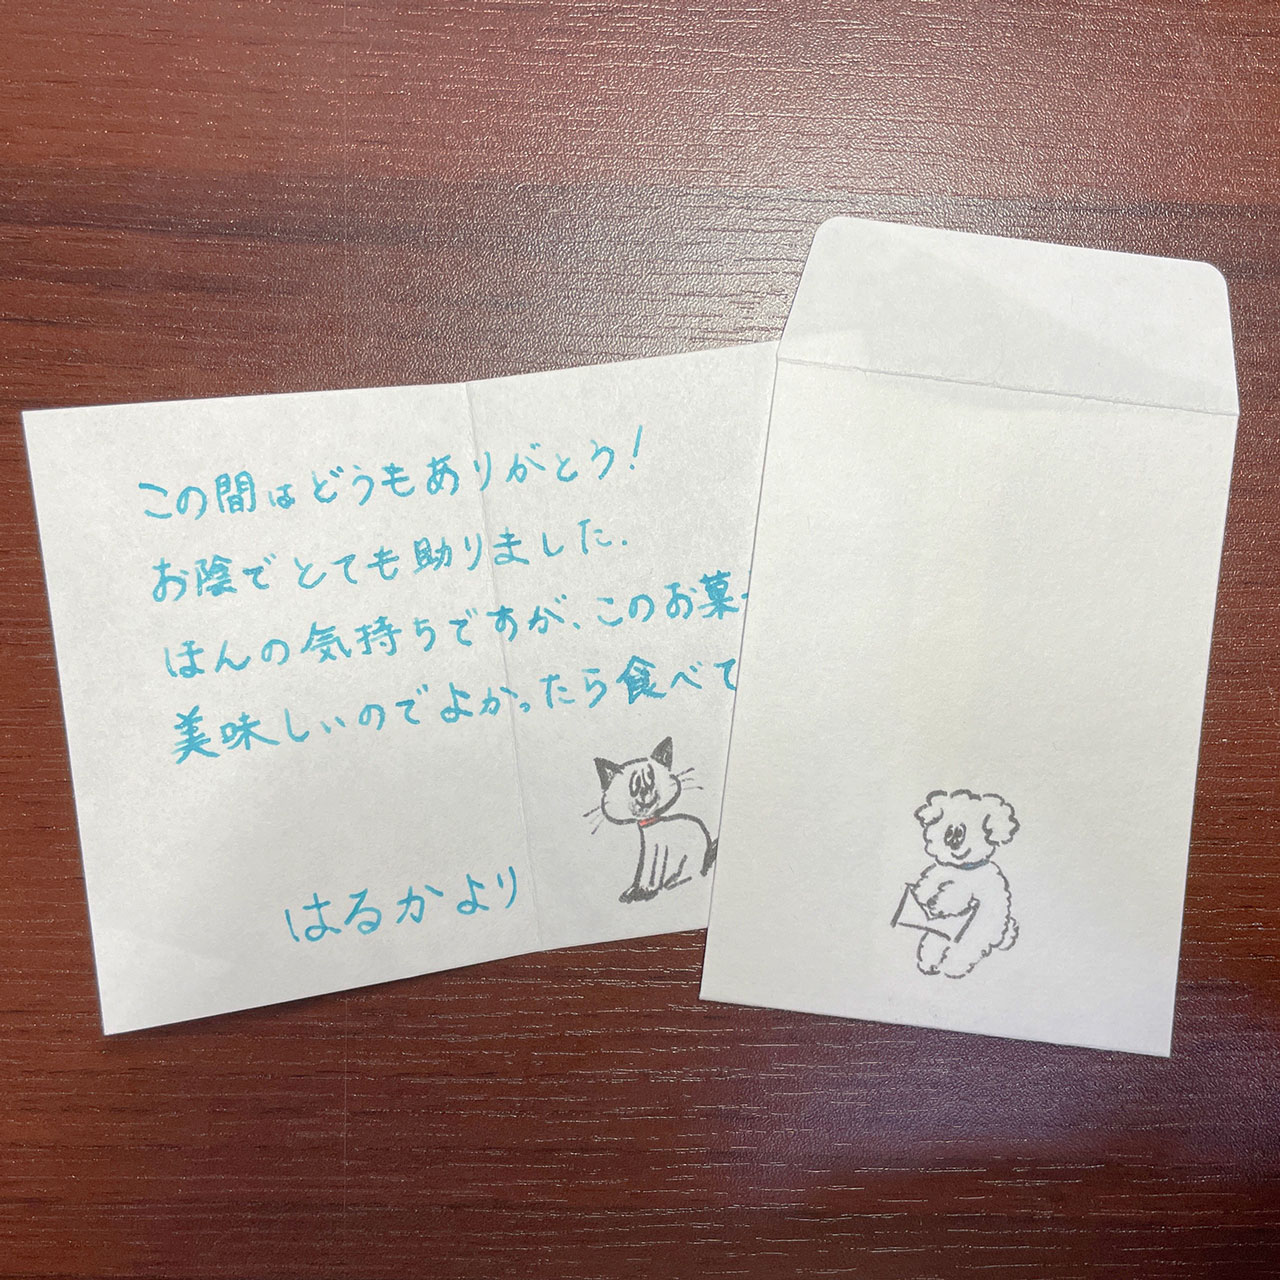 この間はどうもありがとう!
お陰でとても助りました.
ほんの気持ちですが、このお菓
美味しいのでよかったら食べて
はるかより